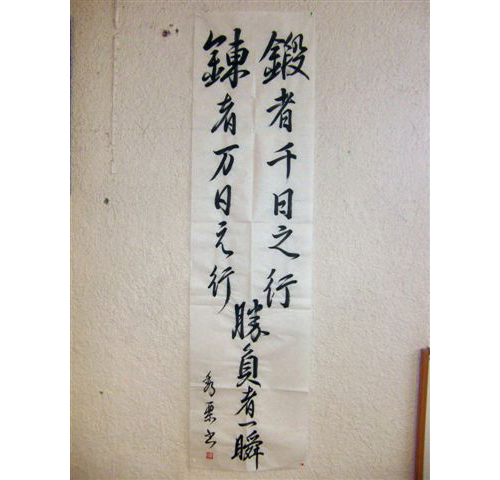 鍛者千日之行
錬者万日之行
勝負者一瞬
秀栗書